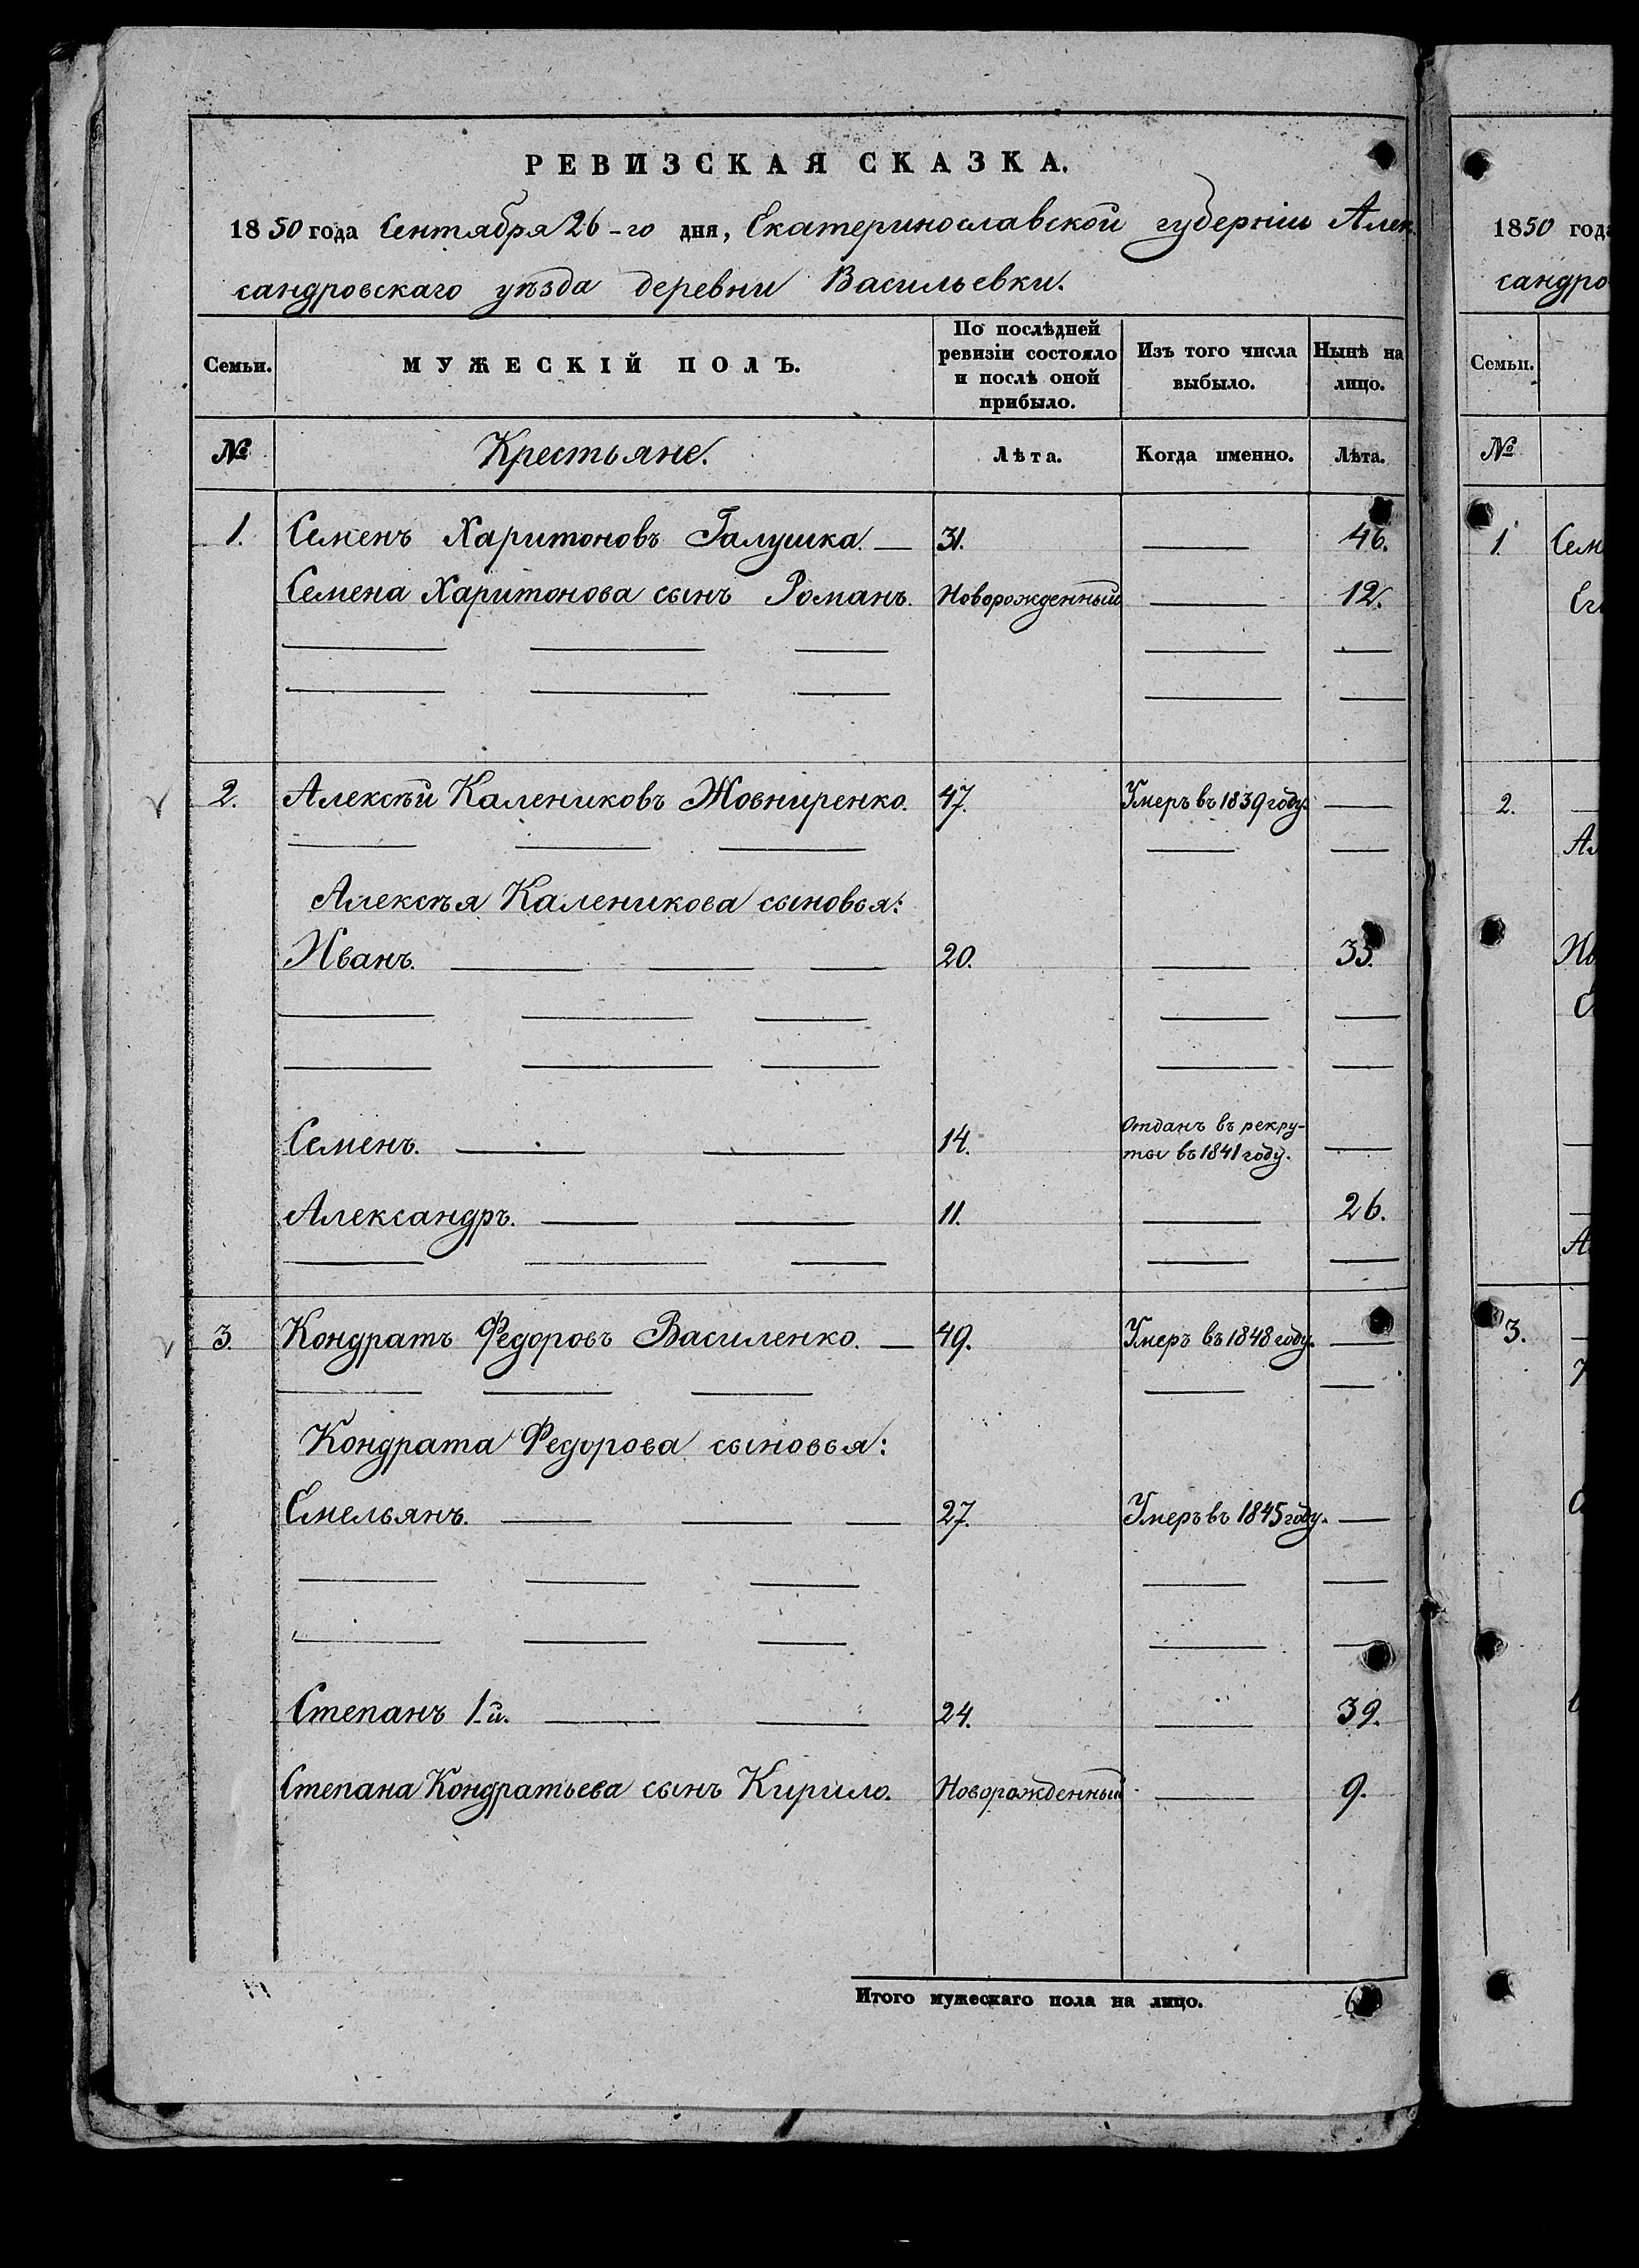 РЕВИЗСКАЯ СКАЗКА.
1850 года Сентября 26-го дня, Екатеринославской губерніи Алек-
сандровскаго уѣзда деревни Васильевки.
Семьи. МУЖЕСКІЙ ПОЛЪ. По послѣдней ревизіи состояло и послѣ оной прибыло. Изъ того числа выбыло. Нынѣ на лицо.
№ Крестьяне. Лѣта. Когда именно. Лѣта.
1. Семенъ Харитоновъ Галушка. — 31. — 46.
Семена Харитонова сынъ Романъ. Новорожденный — 12.
2. Алексѣй Калениковъ Жовниренко. 47. Умеръ въ 1839 году. —
Алексѣя Каленикова сыновья:
Иванъ. — 20. — 35.
Семенъ. — 14. Отданъ въ рекру-
ты въ 1841 году. —
Александръ. — 11. — 26.
3. Кондратъ Федоровъ Василенко. — 49. Умеръ въ 1848 году. —
Кондрата Федорова сыновья:
Емельянъ. — 27. Умеръ въ 1845 году. —
Степанъ 1-й. — 24. — 39.
Степана Кондратьева сынъ Кирило. Новорожденный — 9.
Итого мужескаго пола на лицо.
1850 года
сандро
Семьи.
№
1. Сем
Ег
2.
Ал
Ив
3.